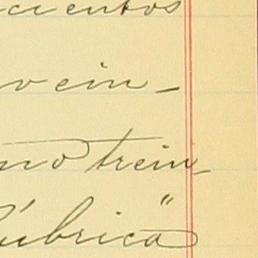 cientos
vein-
no trein-
Rúbrica"